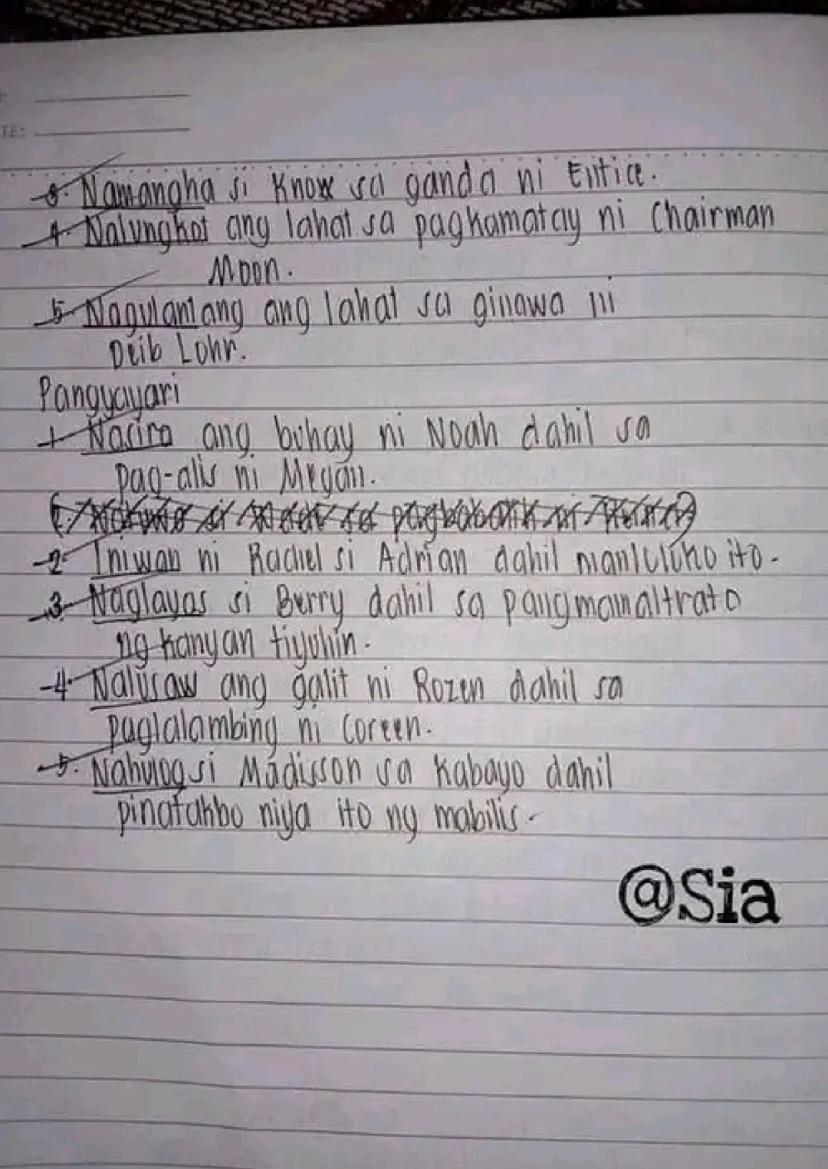 TE:
3. Namangha si Knox sa ganda ni Entice.
4. Nalungkot ang lahat sa pagkamatay ni Chairman
Moon.
5. Nagulantang ang lahat sa ginawa ni
Deib Lohr.
Pangyayari
1. Nasira ang buhay ni Noah dahil sa
pag-alis ni Megan.
2. Iniwan ni Rachel si Adrian dahil manloloko ito.
3. Naglayas si Berry dahil sa pangmamaltrato
ng kanyan tiyuhin.
4. Nalusaw ang galit ni Rozen dahil sa
paglalambing ni Coreen.
5. Nahulog si Madisson sa kabayo dahil
pinatakbo niya ito ng mabilis.
@Sia